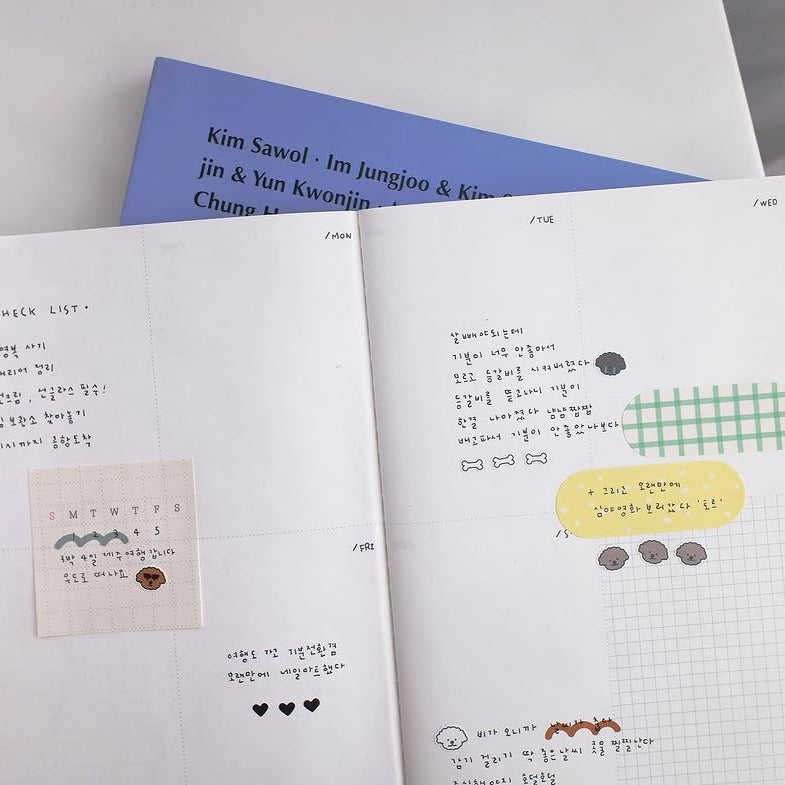 Kim Sawol · Im Jungjoo & Kim
jin & Yun Kwonjin ·
Chung
/MON
/TUE
/WED
HECK LIST.
사기
정리
선글라스 필수!
찾아놓기
시까지 공항도착
S M T W T F S
1 2 3 4 5
3박 4일 제주여행 갑니다
우도로 떠나요
살 빼야되는데
기분이 너무 안좋아서
모르고 등갈비를 시켜버렸다
등갈비를 뜯고나니 기분이
한결 나아졌다 냠냠쩝쩝
배고파서 기분이 안좋았나보다
+ 그리고 오랜만에
심야영화 보러갔다 '토르'
/FRI
/S
여행도 가고 기분전환겸
오랜만에 네일아트했다
비가 오니까 날씨가 춥다
감기 걸리기 딱 좋은날씨 콧물 찔찔난다
조심해야지 호덜호덜